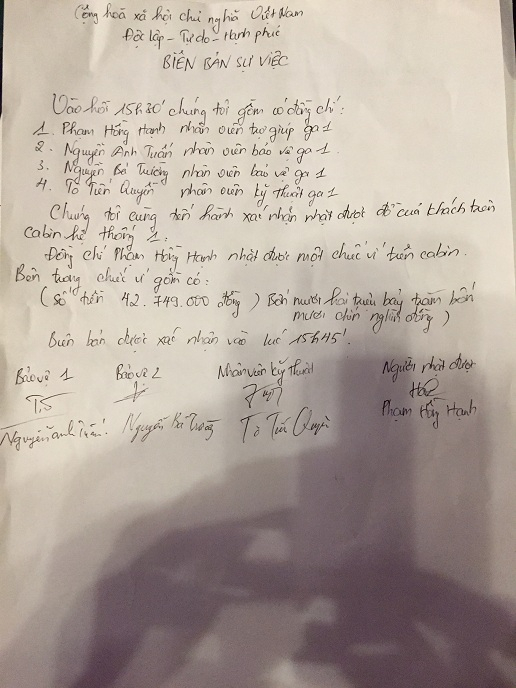 Cộng hoà xã hội chủ nghĩa Việt Nam
Độc lập - Tự do - Hạnh phúc
BIÊN BẢN SỰ VIỆC
Vào hồi 15h30' chúng tôi gồm có đồng chí:
1. Phạm Hồng Hạnh nhân viên trợ giúp ga 1.
2. Nguyễn Anh Tuấn nhân viên bảo vệ ga 1.
3. Nguyễn Bá Trường nhân viên bảo vệ ga 1
4. Tô Tiến Quyền nhân viên kỹ thuật ga 1
Chúng tôi cùng tiến hành xác nhận nhặt được đồ của khách trên
cabin hệ thống 1.
Đồng chí Phạm Hồng Hạnh nhặt được một chiếc ví trên cabin.
Bên trong chiếc ví gồm có:
(số tiền 42.749.000 đồng) Bốn mươi hai triệu bảy trăm bốn
mươi chín nghìn đồng)
Biên bản được xác nhận vào lúc 15h45'.
Bảo vệ 1 Bảo vệ 2 Nhân viên kỹ thuật Người nhặt được
Nguyễn Anh Tuấn Nguyễn Bá Trường Tô Tiến Quyền Phạm Hồng Hạnh